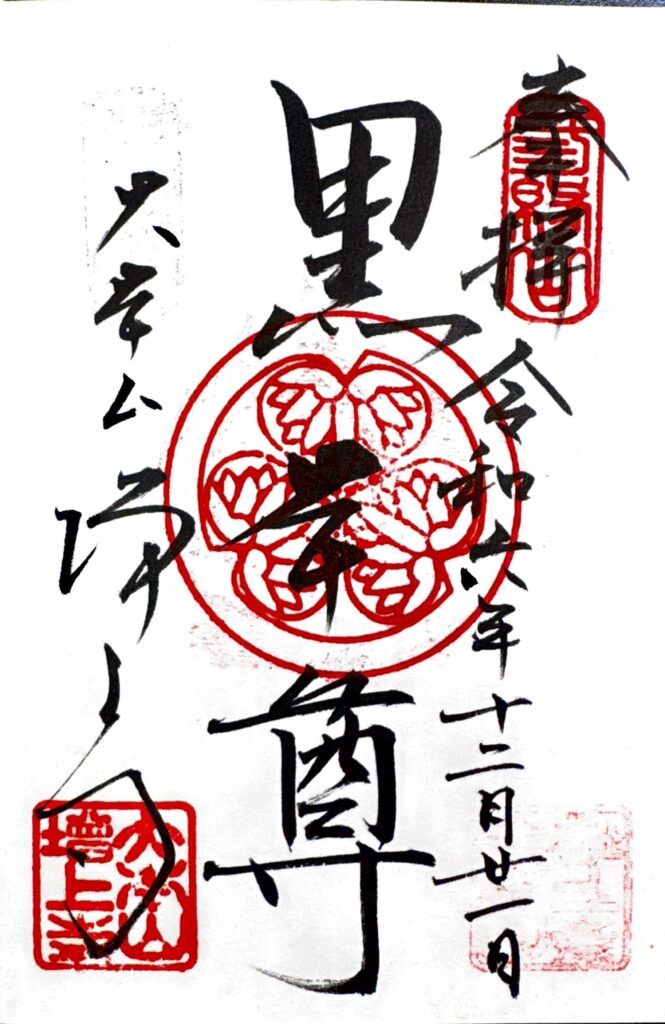 奉拝
令和六年十二月廿一日
黒本尊
大本山
増上寺
大本山
増上寺